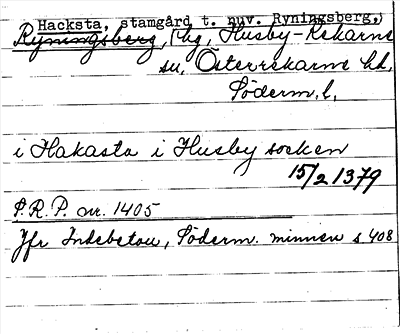 Hacksta, stamgård t. nuv. Ryningsberg,)
Ryningsberg, (hg, Husby-Rekarne
sn, Österrekarne hd,
Söderm. l,
i Hakasta i Husby socken
15/2 1379
S.R.P. nr. 1405
Jfr Indebetou, Söderm. minnen s 408